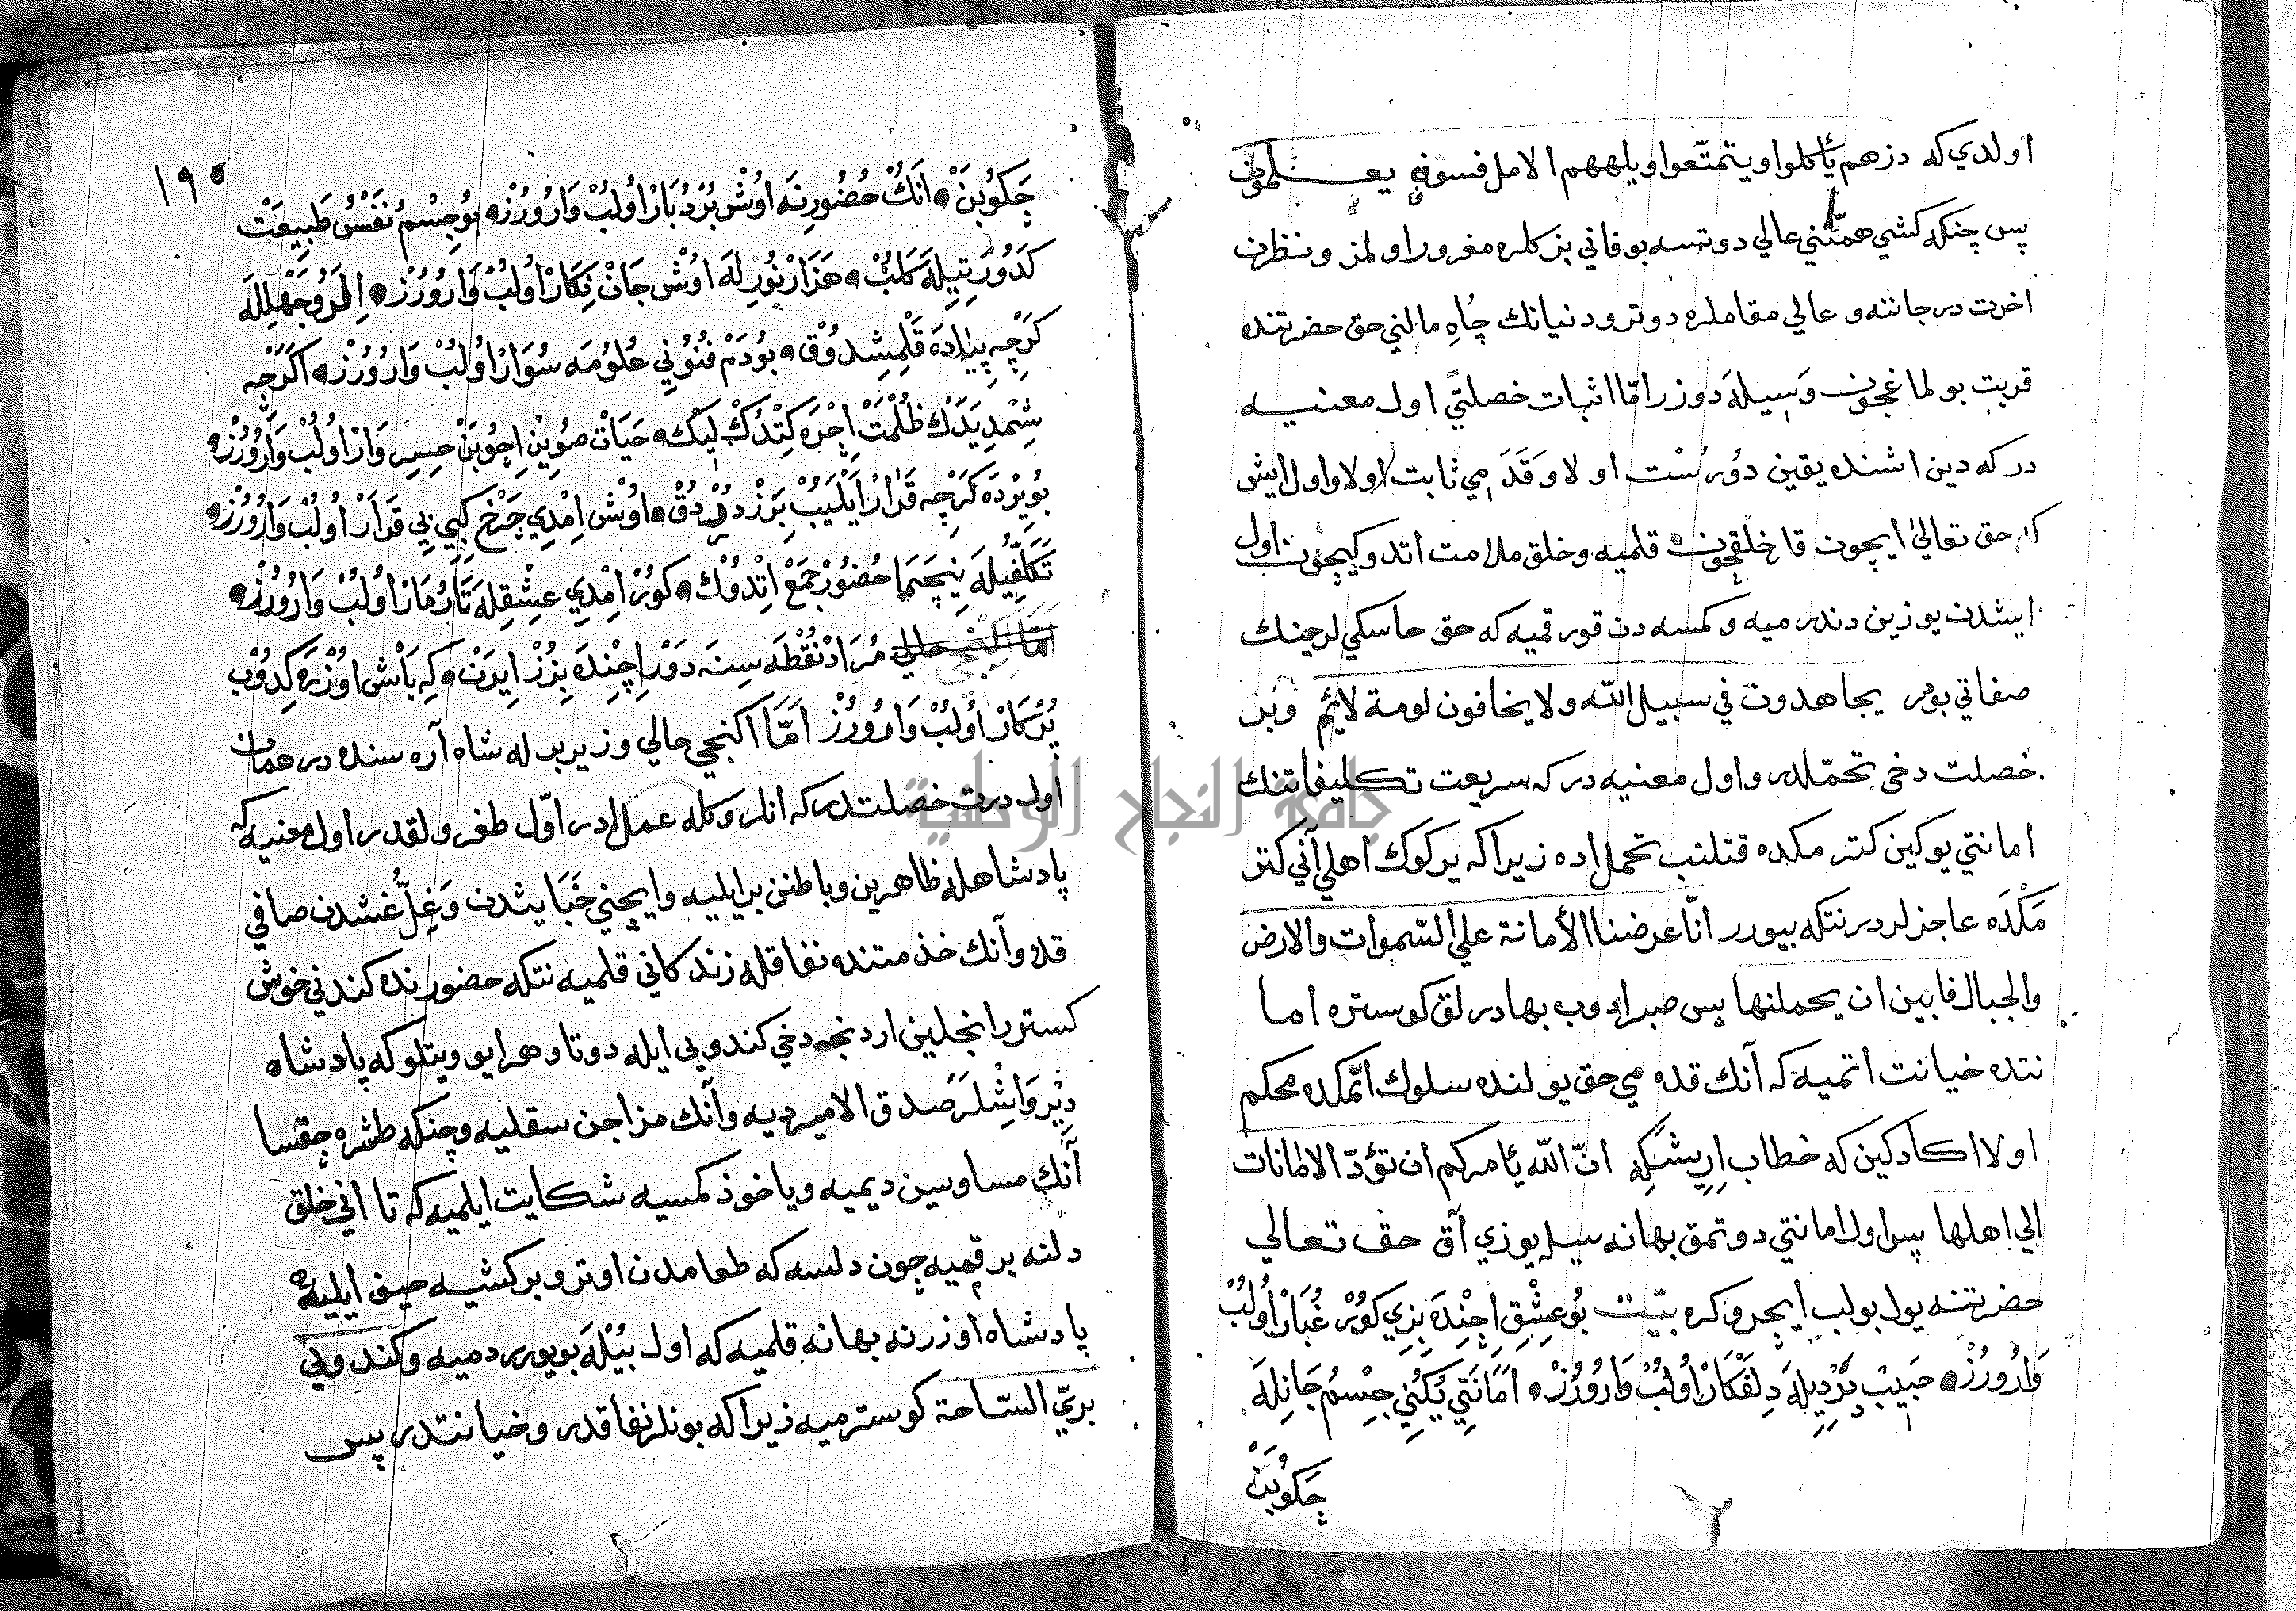 اولدي كه دزهم يأكلوا ويتمتّعوا ويلههم الامل فسوف يعلمون
پس چنكه كشي همّتني عالي دوتسه بو فاني بزكلره مغرور اولمز ونظرن
اخرت درجاتنه و عالي مقاملره دوتر ودنيانك جاه مالني حق حضرتنده
قربت بولماغچون وسيله دوزر امّا اثبات خصلتي اول معنيه
در كه دين اشنده يقين دورست اولا وقدمي ثابت اولا و اول ايش
كه حق تعالى ايچون قا خلقچون قلميه وخلق ملامت اتدوكيچون اول
ايشدن يوزين دندرميه وكمسه دن قورقميه كه حق خاسكي لرچنك
صفاتي بودر يجاهدون في سبيل الله ولا يخافون لومة لائم وبر
خصلت دخي تحمّلدر و اول معنيه در كه سريعت تكليفاتنك
امانتي يوكين كترمكده قتلنب تحمل اده زيرا كه ير كوك اهلي آني كتر
مكده عاجزلردر نتكه بيورر انّا عرضنا الأمانة على السّموات والارض
والجبال فابين ان يحملنها پس صبر ادوب بهادرلق كوستره اما
نتده خيانت اتميه كه آنك قدمي حق يولنده سلوك اتمكده محكم
اولا اكا دكين كه خطاب اريشكه انّ الله يأمركم ان تؤدّ الامانات
الي اهلها پس اول امانتي دوتمق بهانه سيله يوزي آق حق تعالي
حضرتنه يول بولب ايچرو كره بيت بو عشق اچنده بزي كور غبار اولب
وارورز حبيب درديله دلفكار اولب وارورز امانتي يكني جسم جانله
چكوبن
١٩٥
چكوبن انك حضورنه اوش بردبار اولب وارورز بو جسم نفس طبيعت
كدورتيله كلب هزار نوريله اوش جان نكار اولب وارورز
كرچه پياده قلمشدوق بودم فنوني علومه سوار اولب وارورز اكرچه
شمديدك ظلمت اچره كتدك ليك حيات صوين اچوبن وار اولب وارورز
بو يرده كرچه قرار ايليب بزر دردق اوش امدي چرخ كبي بي قرار اولب وارورز
تكلفيله نيچما حضور جمع اتدوك كور امدي عشقله تارمار اولب وارورز
مراد نقطه سنه دور اچنده بزز ايرن كه باش اوزره كدوب
پركار اولب وارورز امّا اكنجي حالي وزيربر له شاه آره سنده در همان
اول درت خصلتدر كه انلروكله عمل ادر اوّل طغرولقدر اول معنيه كه
پادشاهله ظاهرين وباطنن بر ايليه وايچني خبايثدن وغلّ غشدن صافي
قله وآنك خذمتنده نفاقله زندكاني قلميه نتكه حضورنده كندني خوش
كسترر انجلين اردنجه دخي كندوبي ايله دوتا وهر ايو ويتلو كه پادشاه
ديروايشلر صدق الامير ديه وآنك مزاجن سقليه وچنكه طشره چقسا
آنك مساوسين ديميه ويا خوذ كمسيه شكايت ايلميه كه تا اني خلق
دلنه برقميه چون دلسه كه طعامدن اوتر وبر كشيه حيف ايليه
پادشاه اوزرنه بهانه قلميه كه اول بيله بويورر دميه وكندوبي
بريّ السّاحة كوسترميه زيرا كه بونلر نفاقدر وخيانتدر پس